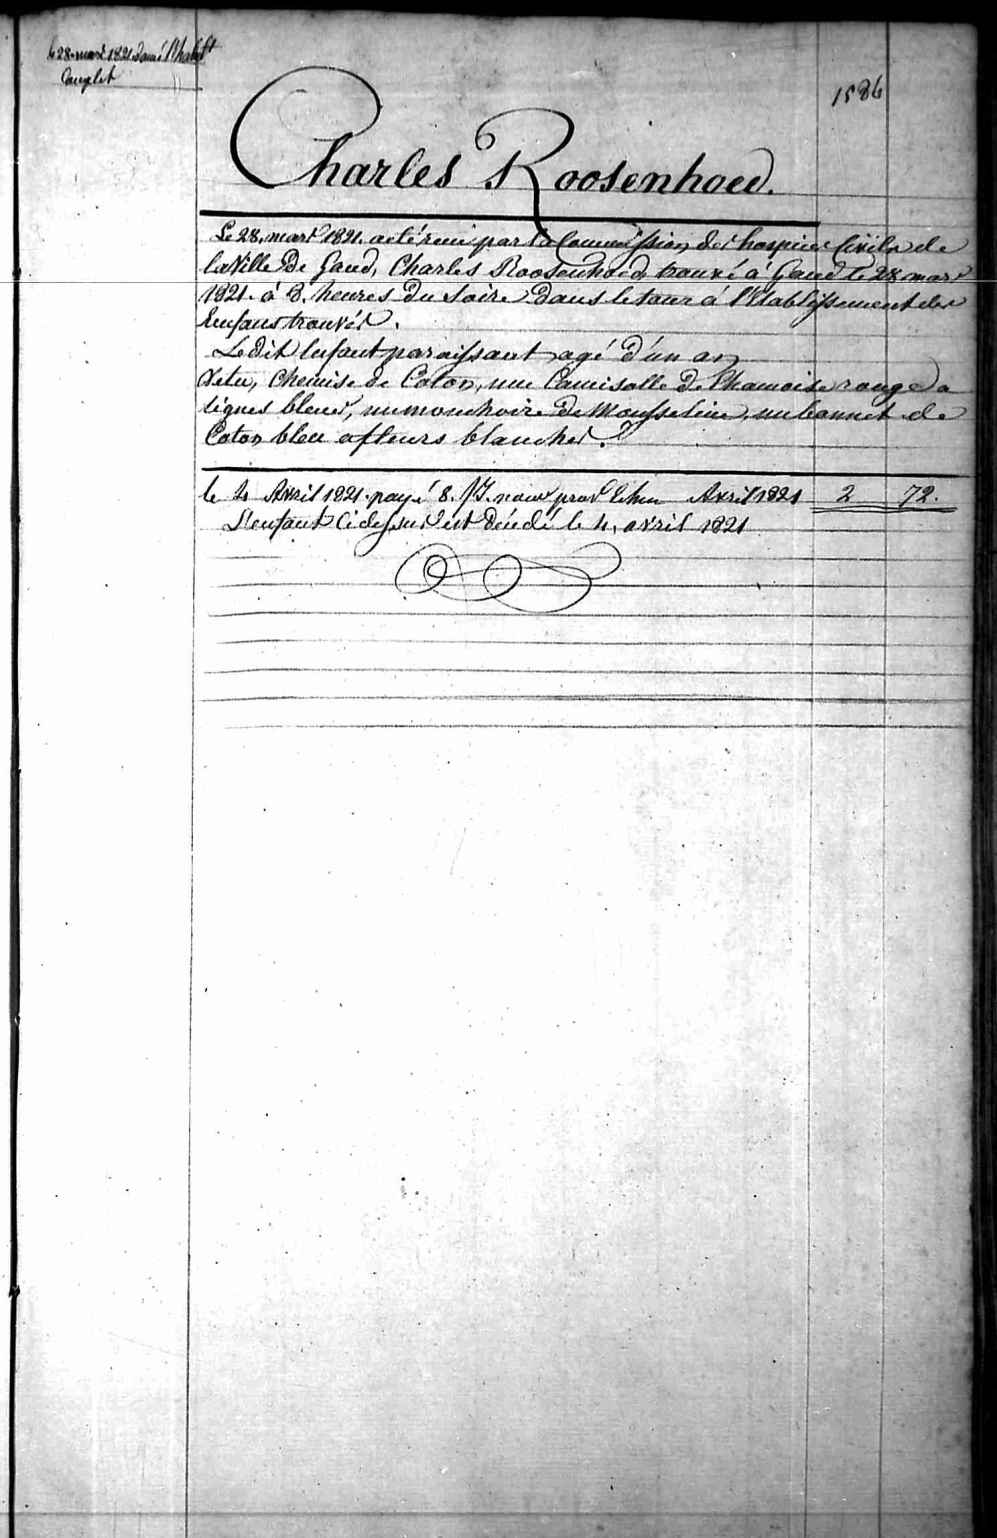 le 28 mars 1821 donné l'habilt
Complet
1586
Charles Roosenhoed.
Le 28. mars 1821. a eté reçu par la Commission des hospices Civils de
la Ville de Gand, Charles Roosenhoed, trouvé à Gand le 28 mars
1821. à 8. heures du Soire dans le tour à l'Etablissement des
Enfans trouvés.
Le dit Enfant paraissant agé d'un an
Vetu, chemise de Coton, une Camisolle de Chamoise rouge a
lignes bleues, un mouchoire de Mousseline, un bonnet de
Coton bleu a fleurs blanches.
le 4 Avril 1821. payé 8. Avril 1821 2 72.
L'enfant Ci dessus est décédé le 4, avril 1821